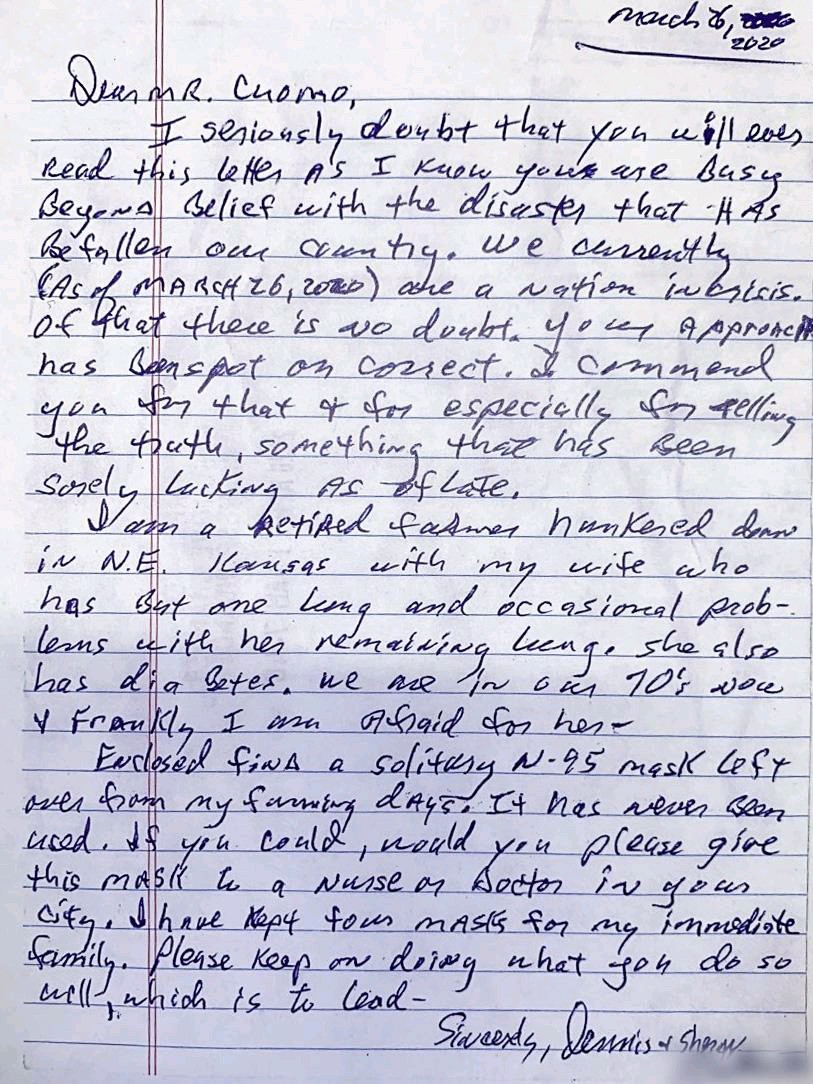 March 26,
2020
Dear MR. Cuomo,
I seriously doubt that you will ever
Read this letter As I know you are Busy
Beyond Belief with the disaster that HAS
Befallen our country. We currently
(As of MARCH 26, 2020) are a Nation in crisis.
Of that there is no doubt. Your Approach
has Been spot on correct. I commend
you for that & for especially for telling
the truth, something that has Been
sorely lacking As of Late.
I am a Retired farmer hunkered down
in N.E. Kansas with my wife who
has But one lung and occasional prob-
lems with her remaining lung. She also
has diaBetes. We are in our 70's now
& Frankly I am Afraid for her-
Enclosed find a solitary N-95 mask left
over from my farming days. It has never Been
used. If you could, would you please give
this mask to a Nurse or Doctor in your
City. I have kept four masks for my immediate
family. Please keep on doing what you do so
well, which is to lead-
Sincerely, Dennis & Sharon